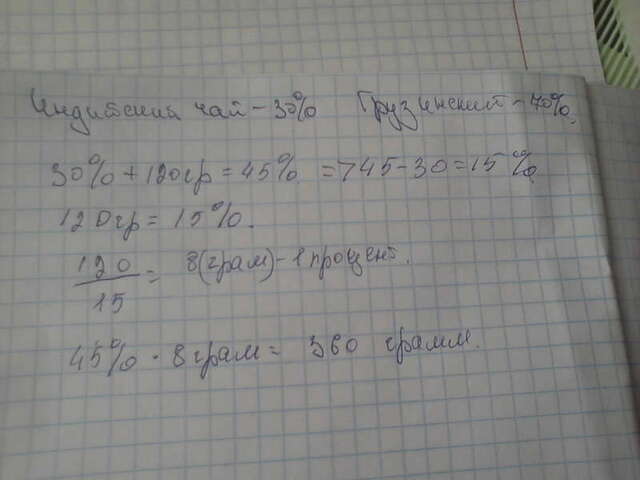 Индийский чай - 30% Грузинский - 70%.
30% + 120гр = 45% => 45 - 30 = 15%.
120гр = 15%.
120/15 = 8(грам) - 1 процент.
45% · 8 грам = 360 грамм.